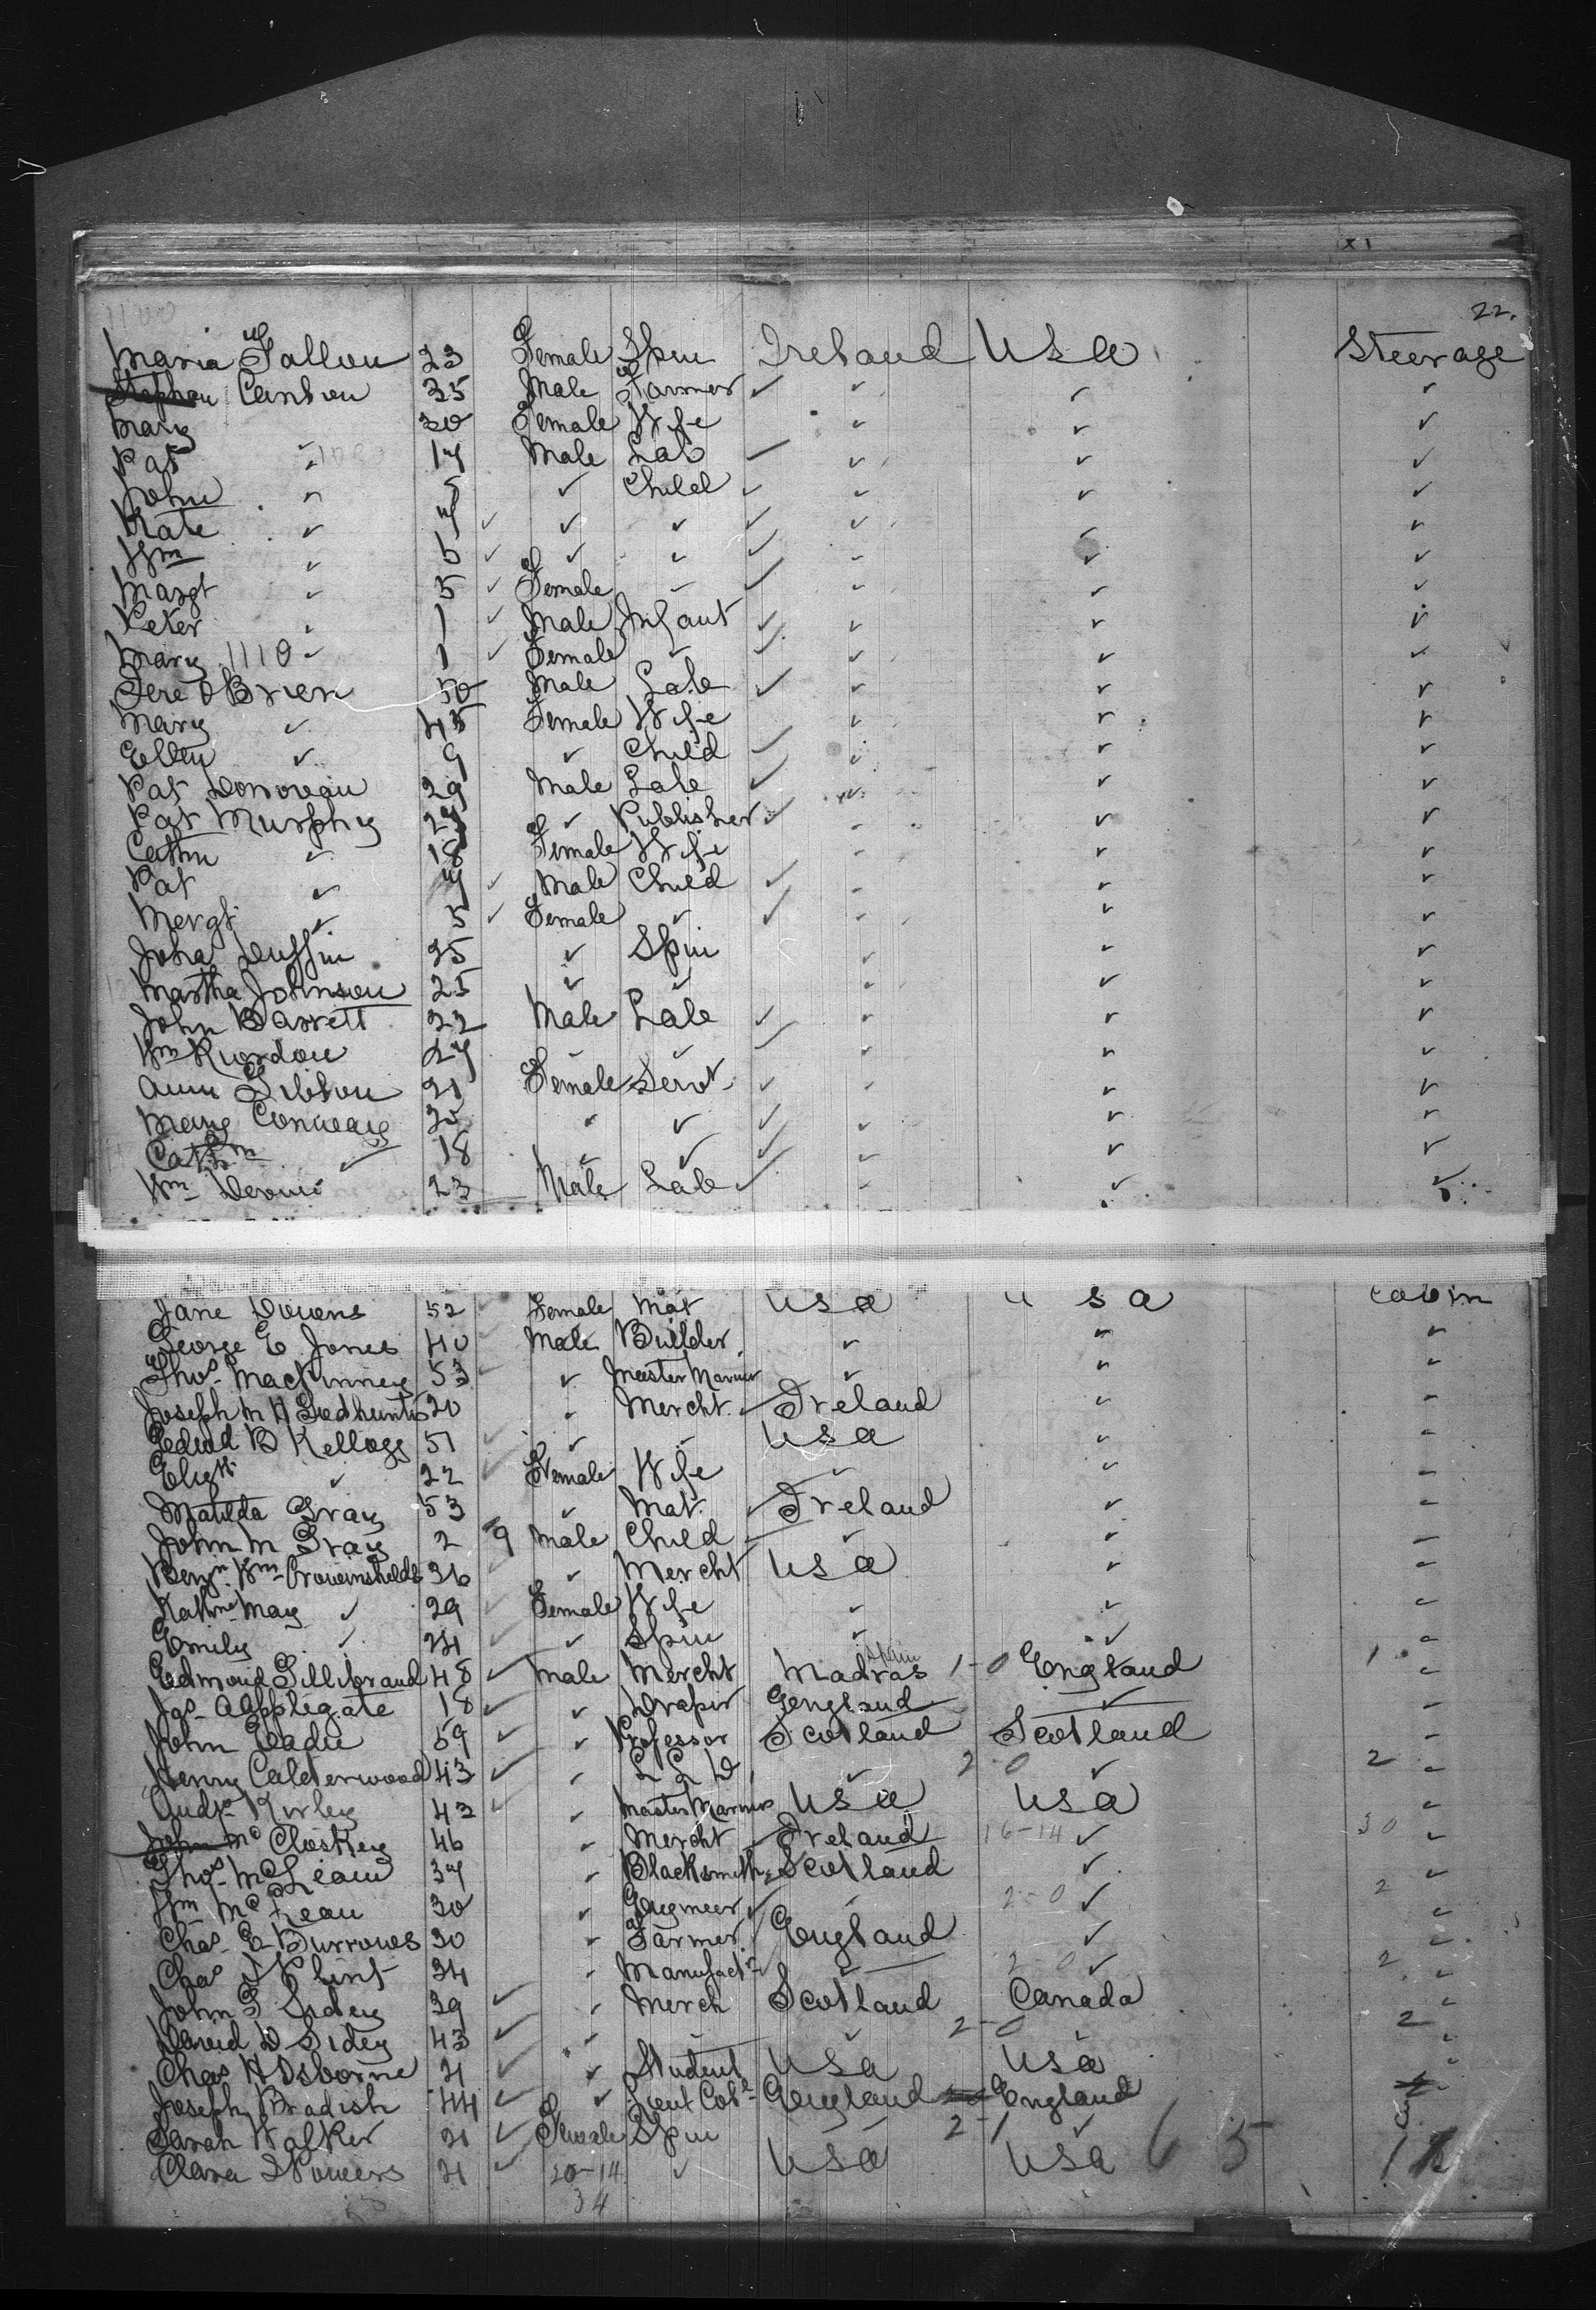 22.
Maria Fallon 23 Female Spin Ireland USA Steerage
Stephen Canlon 35 Male Farmer ✓ ✓ ✓ ✓
Mary 30 Female Wife ✓ ✓ ✓
Pat ✓ 17 Male Lab ✓ ✓ ✓ ✓
John ✓ ✓ Child ✓ ✓ ✓ ✓
Kate ✓ 7 ✓ ✓ ✓ ✓ ✓ ✓ ✓
Wm ✓ 6 ✓ ✓ ✓ ✓ ✓ ✓ ✓
Margt ✓ 5 ✓ Female ✓ ✓ ✓ ✓ ✓
Peter ✓ 1 ✓ Male Infant ✓ ✓ ✓ ✓
Mary 1110 ✓ 1 ✓ Female ✓ ✓ ✓ ✓ ✓
Jere O Brien 50 Male Lab ✓ ✓ ✓ ✓
Mary ✓ 45 Female Wife ✓ ✓ ✓
Ellen ✓ 9 ✓ Child ✓ ✓ ✓ ✓
Pat Donovan 29 Male Lab ✓ ✓ ✓ ✓
Pat Murphy 27 ✓ Publisher ✓ ✓ ✓ ✓
Cathn ✓ 18 Female Wife ✓ ✓ ✓
Pat ✓ 7 ✓ Male Child ✓ ✓ ✓ ✓
Margt ✓ 5 ✓ Female ✓ ✓ ✓ ✓ ✓
Joha Duffin 25 ✓ Spin ✓ ✓ ✓
Martha Johnson 25 ✓ ✓ ✓ ✓ ✓
John Barrett 22 Male Lab ✓ ✓ ✓ ✓
Wm Riordon 27 ✓ ✓ ✓ ✓ ✓ ✓
Ann Gibson 21 Female Servt ✓ ✓ ✓ ✓
Mary Conway 25 ✓ ✓ ✓ ✓ ✓ ✓
Cathn ✓ 18 ✓ ✓ ✓ ✓ ✓ ✓
Wm 23 Male Lab ✓ ✓ ✓ ✓
Jane Downs 52 ✓ Female Mat USA USA Cabin
George E Jones 40 ✓ Male Builder ✓ ✓ ✓
Thos MacKinney 53 ✓ ✓ Master Mariner ✓ ✓ ✓
Joseph M H 20 ✓ Mercht ✓ Ireland ✓ ✓
Edwd B Kellogg 51 ✓ ✓ ✓ USA ✓ ✓
Elizth ✓ 22 ✓ Female Wife ✓ ✓ ✓
Matilda Gray 53 ✓ Mat ✓ Ireland ✓ ✓
John M Gray 2 9 Male Child ✓ ✓ ✓ ✓
Benjn Wm Crowninshield 36 ✓ ✓ Mercht USA ✓ ✓
Kathne May ✓ 29 ✓ Female Wife ✓ ✓ ✓
Emily ✓ 24 ✓ ✓ Spin ✓ ✓ ✓
Edmond Gillibrand 48 ✓ Male Mercht Madras 1-0 England 1 ✓
Jas Applegate 18 ✓ ✓ Draper England ✓ ✓
John Eadie 59 ✓ ✓ Professor Scotland Scotland ✓
Henry Calderwood 43 ✓ ✓ L L D ✓ 2-0 ✓ 2 ✓
Andw Kirley 42 ✓ ✓ Master Mariner USA USA ✓
John Mc Closkey 46 ✓ Mercht ✓ Ireland 16-14 ✓ 30 ✓
Thos McLean 37 ✓ Blacksmith Scotland ✓ ✓
Wm McLean 30 ✓ Engineer ✓ ✓ 2-0 ✓ 2 ✓
Chas E Burrows 30 ✓ Farmer England ✓ ✓
Chas Flint 34 ✓ Manufactr ✓ 2-0 ✓ 2 ✓
John G Sidey 39 ✓ ✓ Merch Scotland Canada ✓
David D Sidey 43 ✓ ✓ ✓ ✓ 2-0 ✓ 2 ✓
Chas H Osborne 21 ✓ ✓ Student USA USA ✓
Joseph Bradish 44 ✓ ✓ Lieut Col England England
Sarah Walker 21 ✓ Female Spin ✓ 2-1 ✓
Clara 21 ✓ 20-14 ✓ USA USA 6 5
34